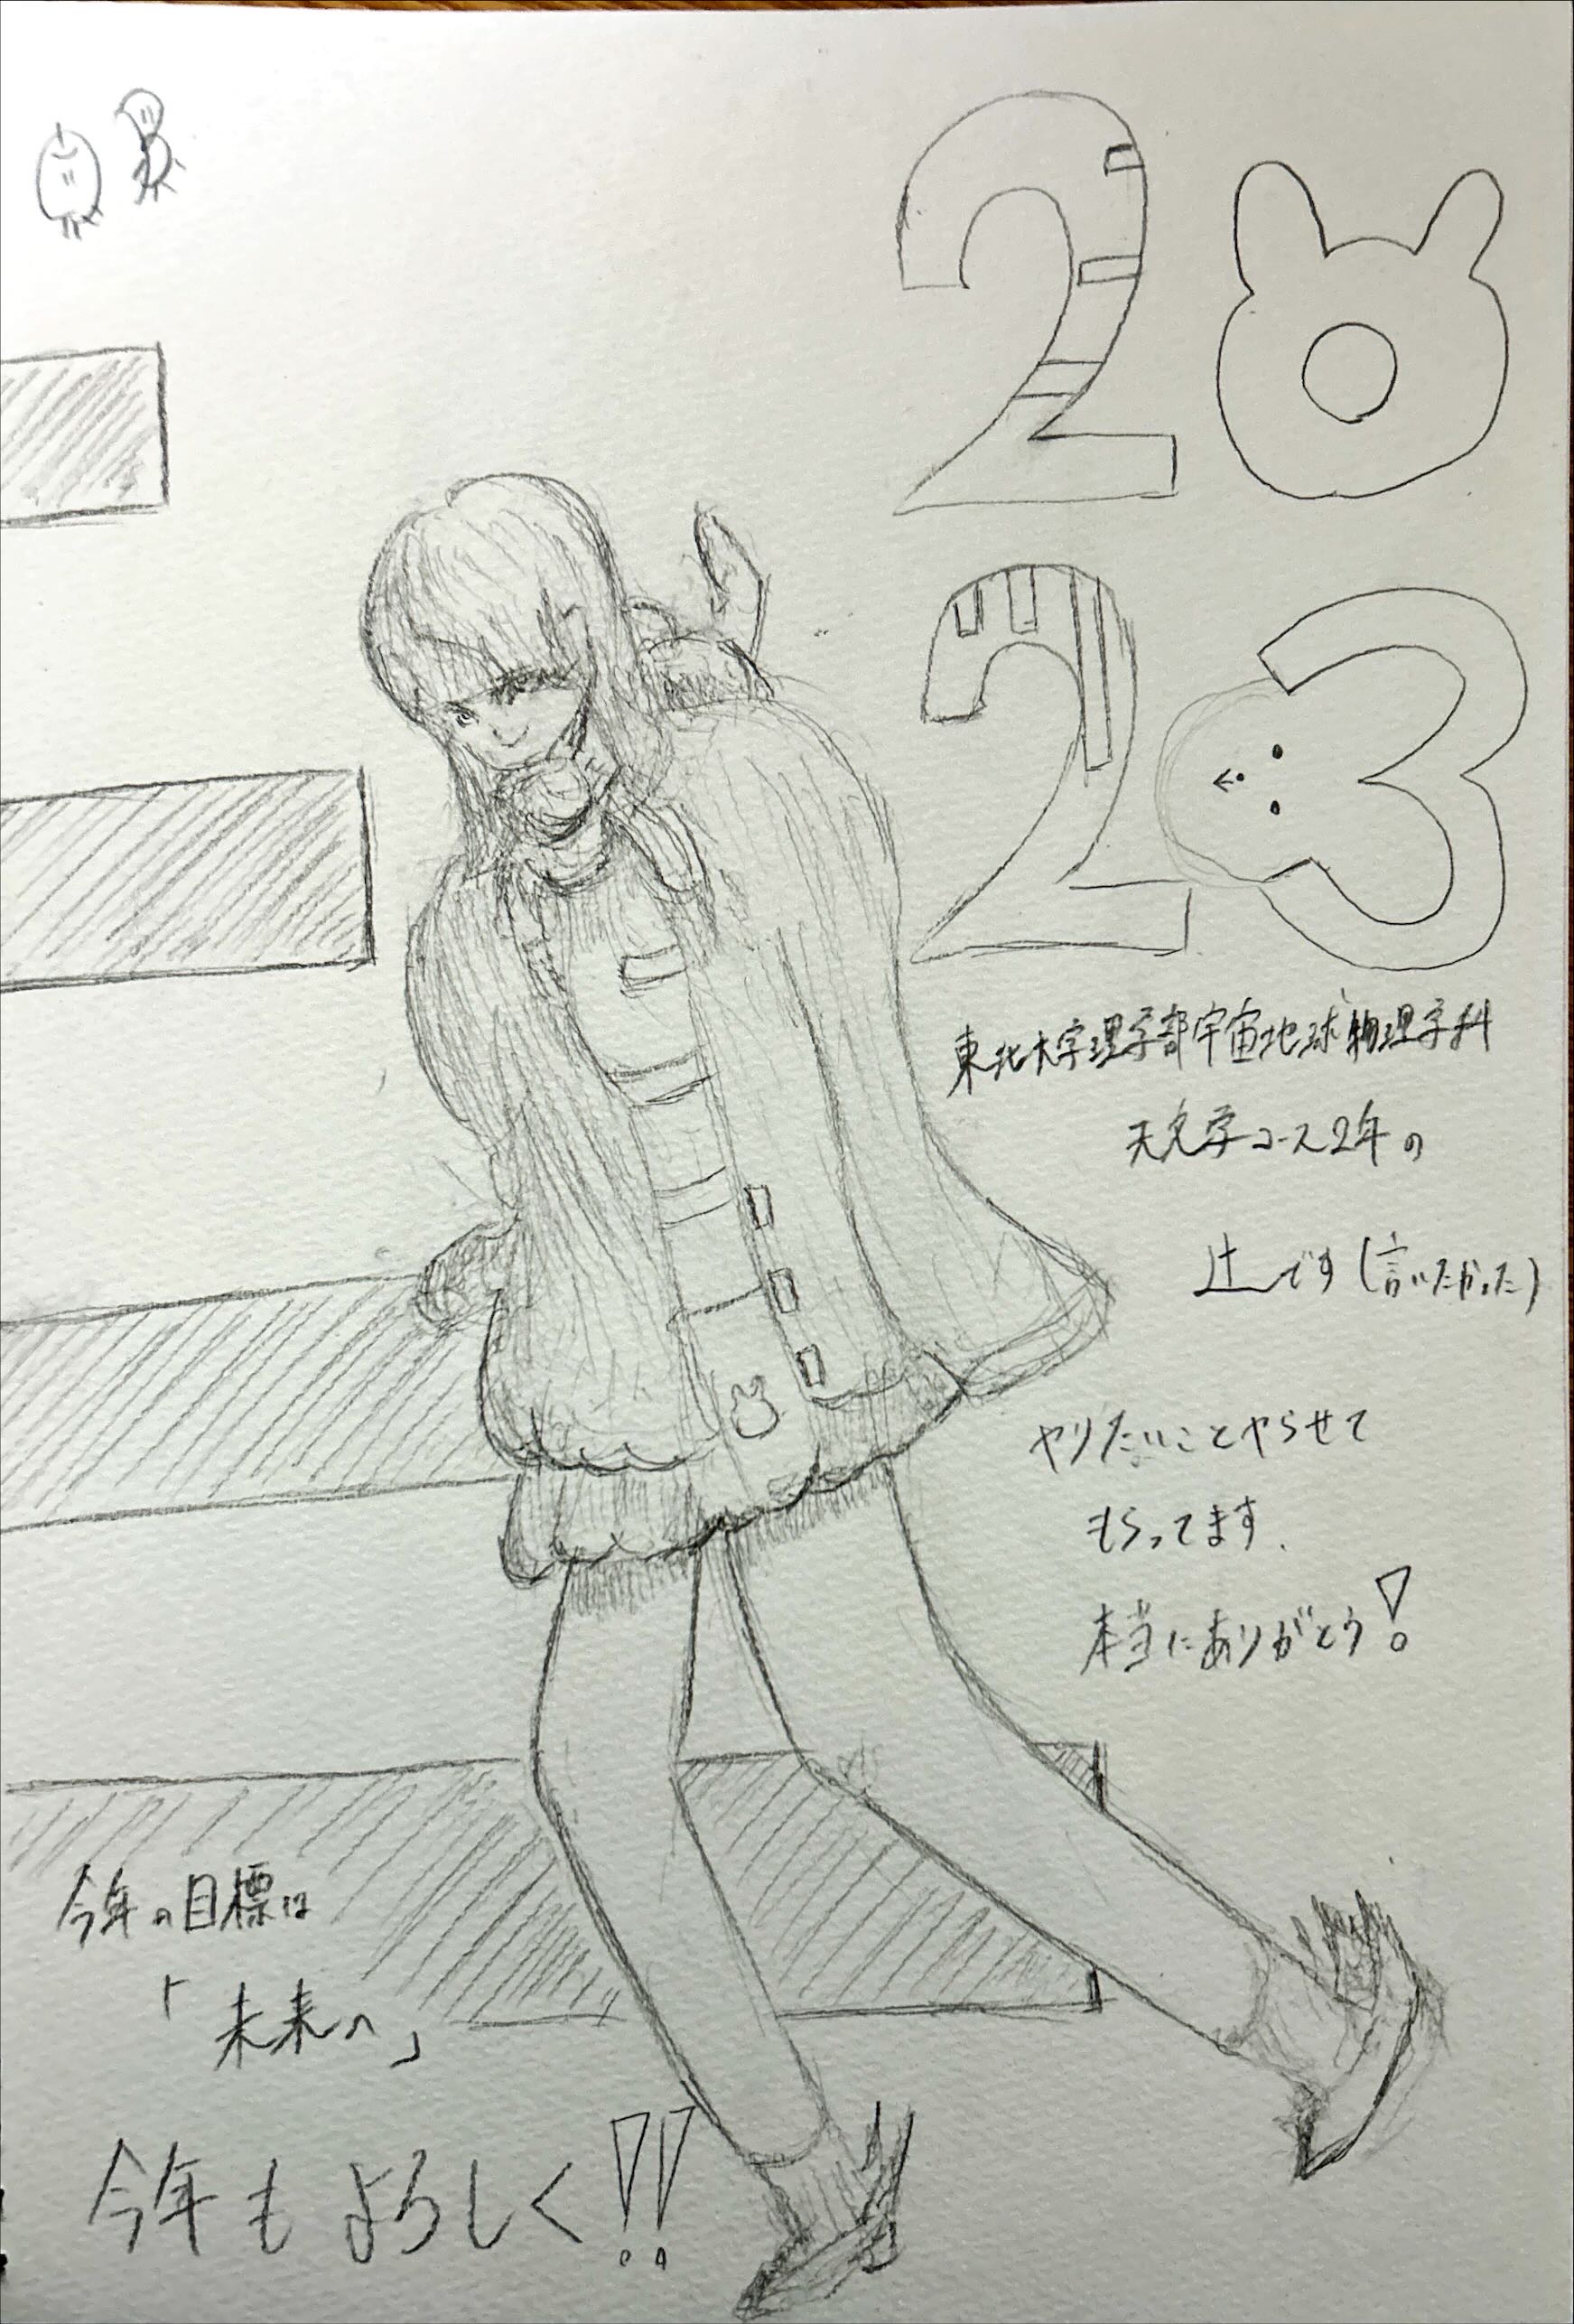 20
23
東北大学理学部宇宙地球物理学科
天文学コース2年の
辻です(言いたかった)
やりたいことやらせて
もらってます.
本当にありがとう!
今年の目標は
「未来へ」
今年もよろしく!!